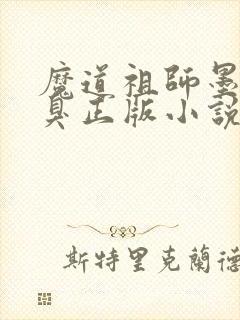 魔道祖師墨
臭正版小說
斯特里克蘭德